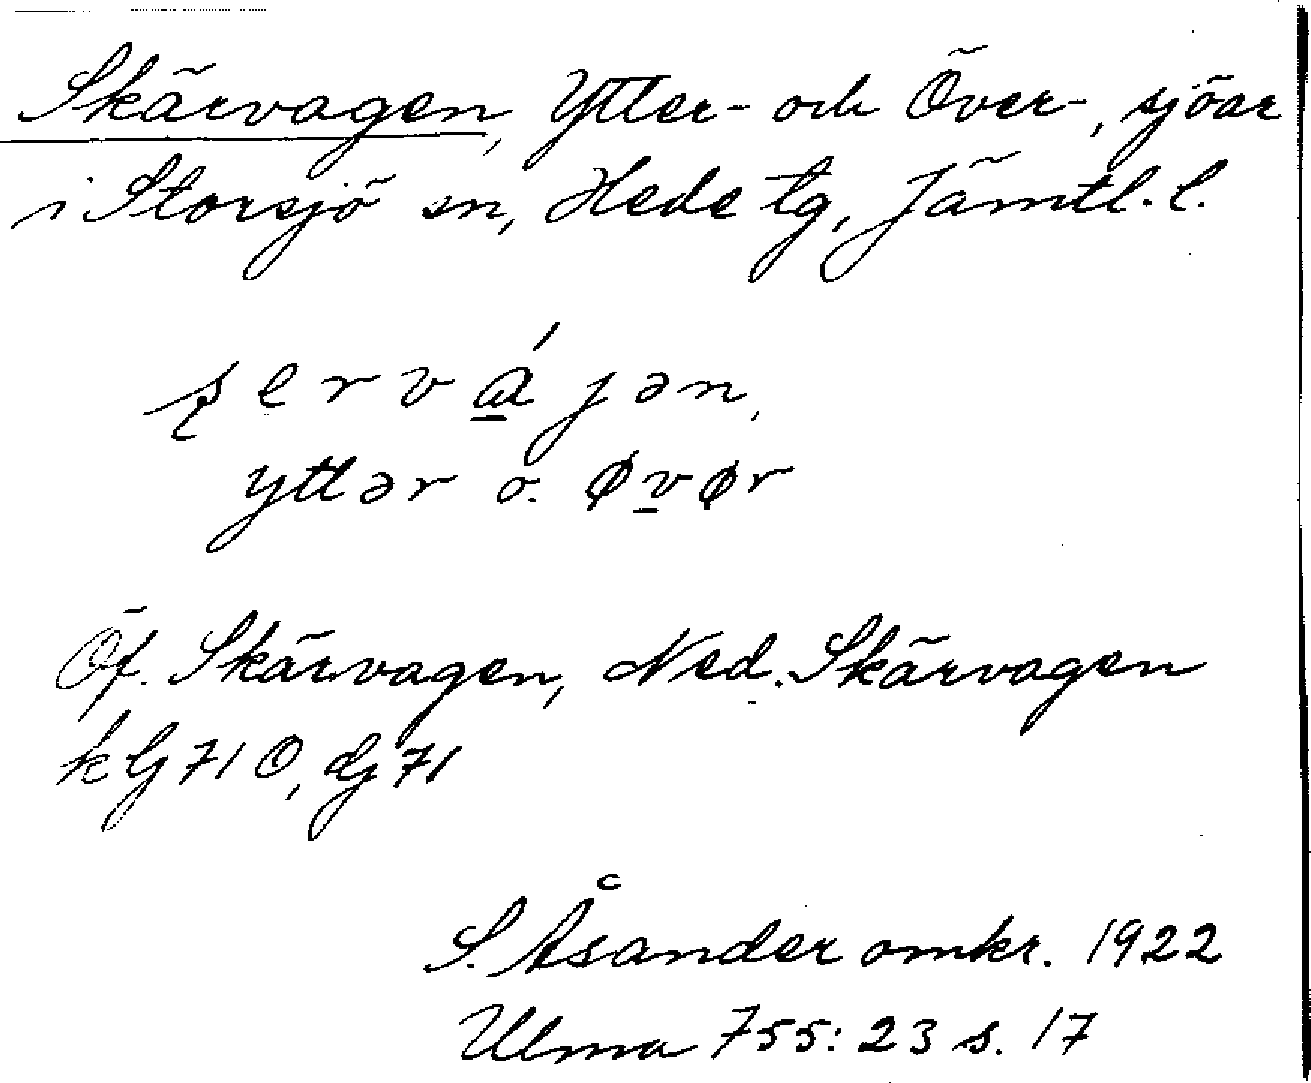 Skärvagen, Ytter- och Över-, sjöar
i Storsjö sn, Hede tg, Jämtl. l.
ʂervájən,
yttər o. øvør
Öf. Skärvagen, Ned. Skärvagen
kG 71 O, dG 71
S. Åsander omkr. 1922
Ulma 755:23 s. 17